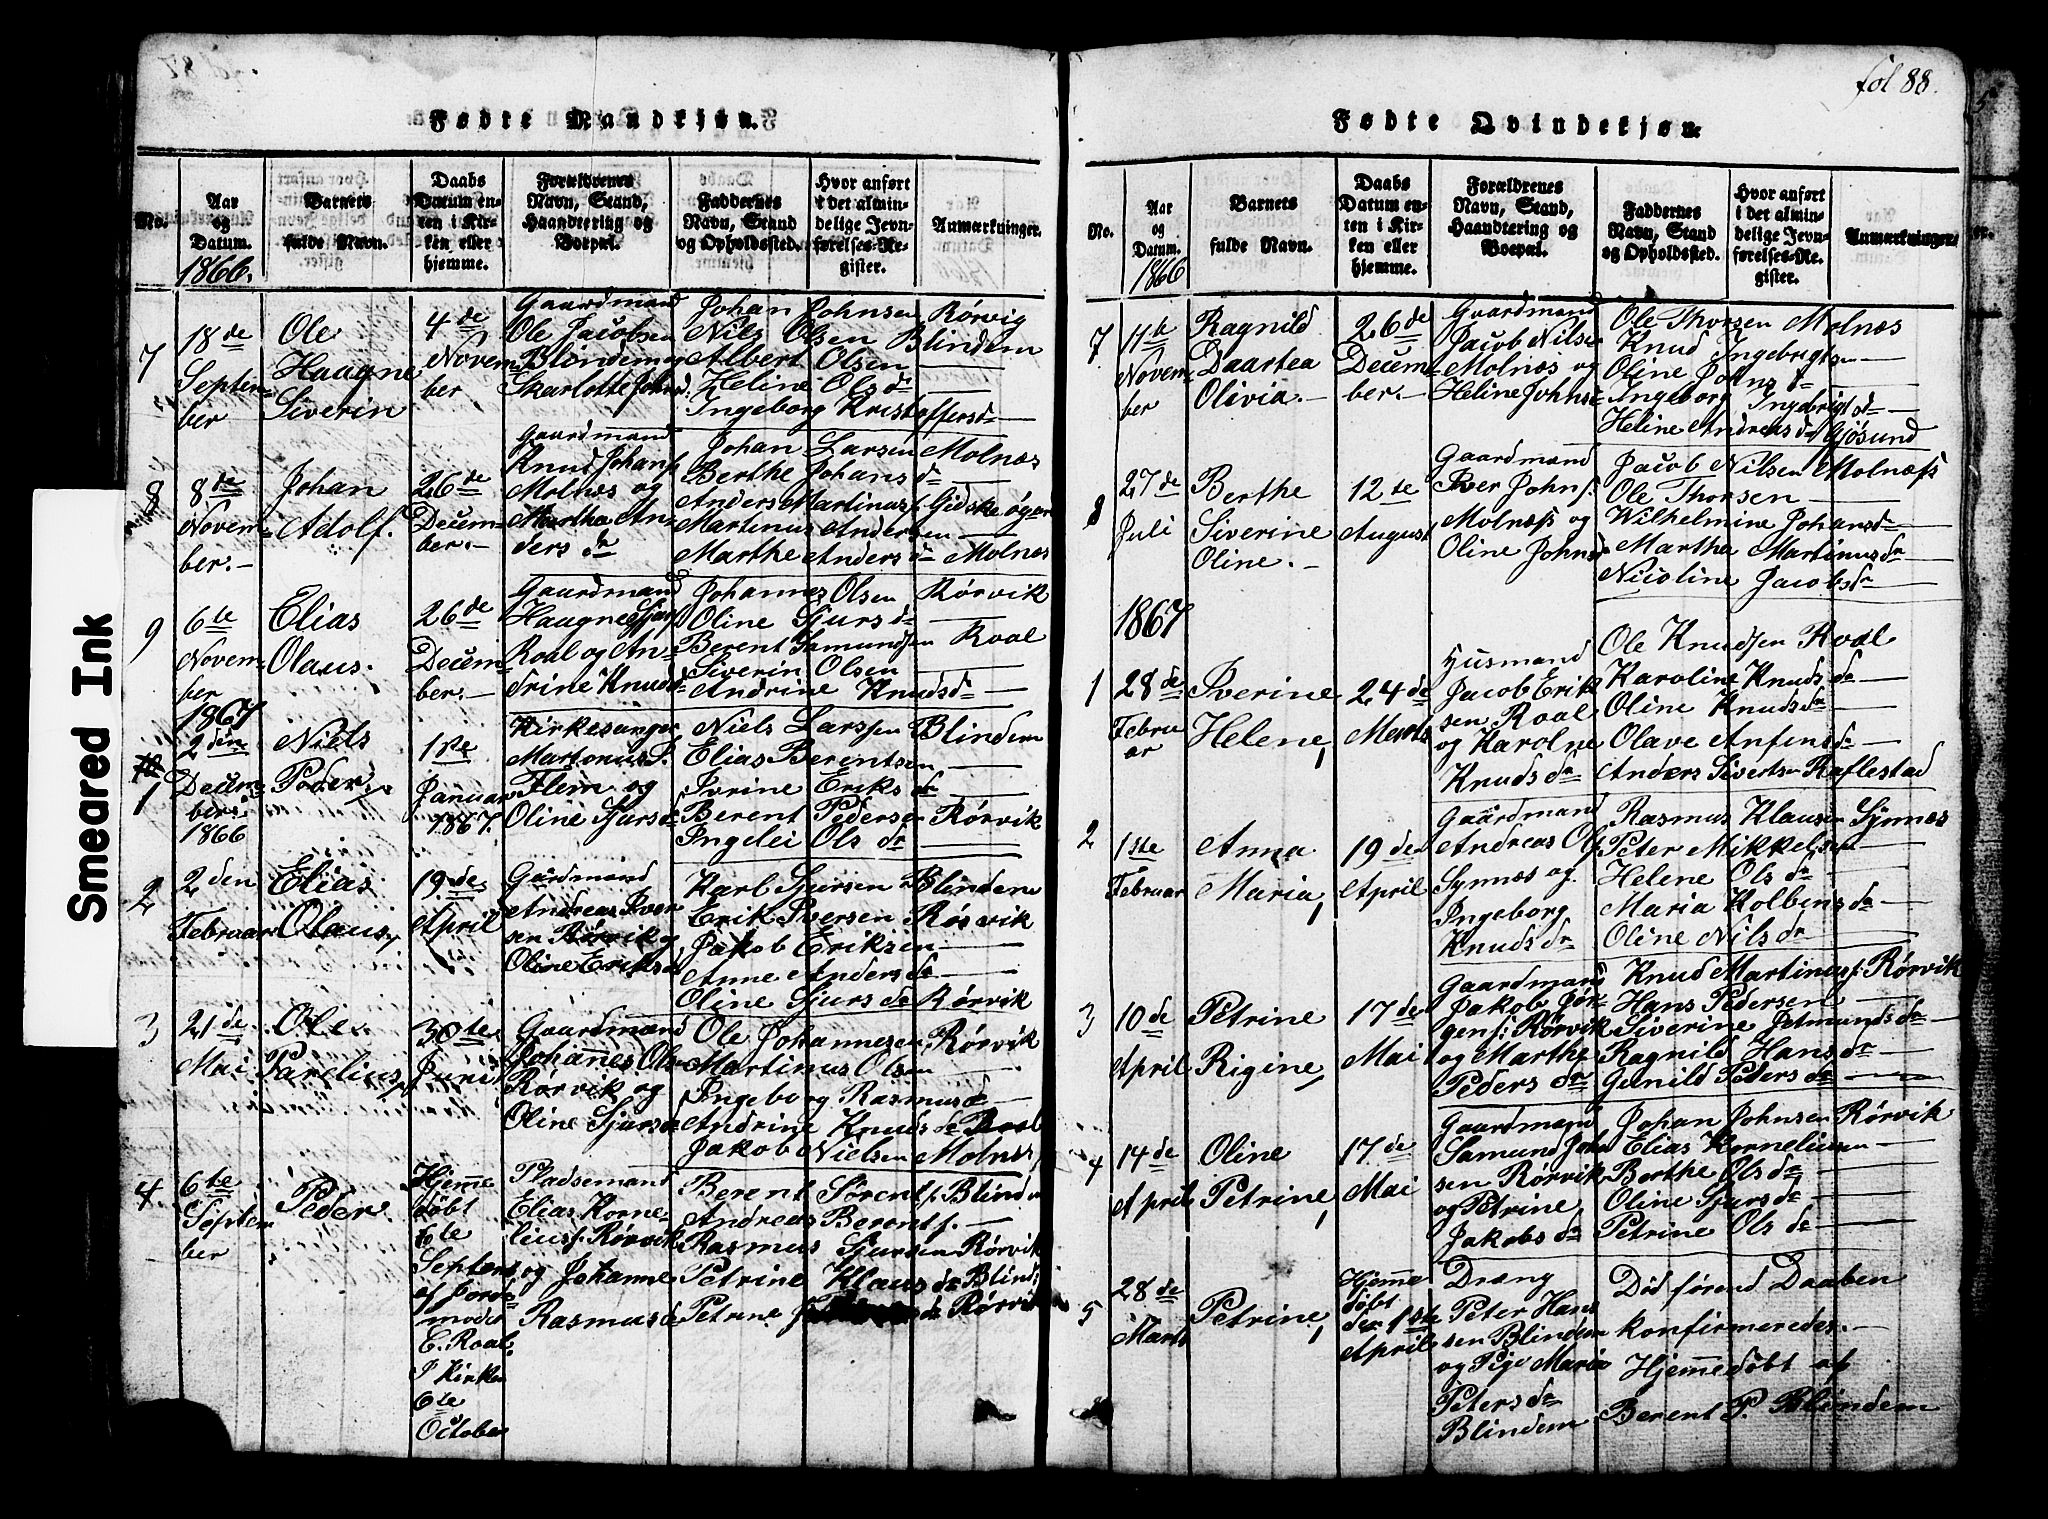 Smeared Ink
fol 88.
Fødte Mandkjøn.
No.
Aar og Datum.
Barnets fulde Navn.
Daabs Datum enten i Kirken eller hjemme.
Forældrenes Navn, Stand, Haandtering og Boepæl.
Faddernes Navn, Stand og Opholdssted.
Hvor anført i det almindelige Jevnførelses-Register.
Anmærkninger.
1866.
7
18de
Septem-
ber
Ole
Haagne
Siverin
4de
Novem-
ber
Gaardmand
Ole Jacobsen
Blindem og
Skarlotte Johnsd.
Johan Johnsen Rørvig
Nils Olsen Blindem
Albert Olsen
Heline Olsdr
Ingeborg Kristoffersdr
8
8de
Novem-
ber.
Johan
Adolf.
26de
Decem-
ber.
Gaardmand
Knud Johans.
Molnæs og
Martha An-
ders dr
Johan Larsen Molnæs
Berthe Johansdr
Anders Martinus. Gidskeøgar
Martinus Andersen
Marthe Andersdr Molnæs
9
6te
Novem-
ber
Elias
Olaus.
26de
Decem-
ber.
Gaardmand
Haagne Sjurs.
Roal og An-
drine Knudsd
Johannes Olsen Rørvik
Oline Sjursdr
Berent Samundsen Roal
Siverin Olsen
Andrine Knudsdr
1867
1
2den
Decem-
ber
1866
Niels
Peder.
1ste
Januar
1867.
Kirkesanger
Martonus P.
Flem og
Oline Sjursd
Niels Larssen Blindem
Elias Berentsen
Ivrine Eriksdr
Berent Pedersen Rørvik
Ingelei Olsdr
2
2den
Februar
Elias
Olaus,
19de
April
Gaardmand
Andreas Iver
sen Rørvik og
Oline Eriksd
Karl Sjursen Blindem
Erik Iversen Rørvik
Jakob Eriksen
Anne Andersdr
Oline Sjursdr Rørvik
3
21de
Mai
Ole
Parelius,
30te
Juni
Gaardmand
Johanes Olsen
Rørvik og
Oline Sjursd
Ole Johannesen Rørvik
Martinus Olsen
Ingeborg Rasmusd
Andrine Knudsdr Roal
Jakob Nielsen Molnes,
4
6te
Septem
ber
Peder.
Hjemme
døbt
6te
Septem
af Jorde
moder
E. Roal.
I Kirken
6te
October
Pladsemand
Elias Korne-
lius. Rørvik
og Johanne
Rasmusd
Berent Sørens. Blindem
Andreas Berents.
Rasmus Sjursen Rørvik
Petrine Klausdr Blind:
Petrine Rørvik
Fødte Qvindekjøn.
No.
Aar og Datum.
Barnets fulde Navn.
Daabs Datum enten i Kirken eller hjemme.
Forældrenes Navn, Stand, Haandtering og Boepæl.
Faddernes Navn, Stand og Opholdssted.
Hvor anført i det almindelige Jevnførelses-Register.
Anmærkninger.
1866
7
11te
Novem-
ber
Ragnild
Daartea
Olivia.
26de
Decem-
ber.
Gaardmand
Jacob Nilsen
Molnæs og
Heline Johnsd
Ole Thorsen Molnæs
Knud Ingebrigtsen
Oline Johnsdr
Ingeborg Ingebrigtsdr
Heline Andreasdr Gjøsund
8
27de
Juli
Berthe
Siverine
Oline.
12te
August
Gaardmand
Iver Johns.
Molnæss og
Oline Johnsd
Jacob Nilsen Molnæss
Ole Thorsen
Wilhelmine Johansdr
Martha Martinusdr
Nicoline Jacobsdr
1867
1
28de
Febru
ar
Iverine
Helene,
24de
Marts
Husmand
Jacob Erik
sen Roal
og Karolne
Knudsdr
Ole Knudsen Roal
Karoline Knudsdr
Oline Knudsdr
Olave Anfinsdr
Anders Sivertsen Røflestad
2
1ste
Februar
Anna
Maria,
19de
April
Gaardmand
Andreas Ols.
Synnes og
Ingeborg
Knudsdr
Rasmus Klausen Synnes
Peter Mikkelsen
Helene Olsdr
Maria Kolbensdr
Oline Nilsdr
3
10de
April
Petrine
Rigine,
17de
Mai
Gaardmand
Jakob Jør-
gens. Rørvik
og Marthe
Pedersdr
Knud Martinus. Rørvik
Hans Pedersen
Siverine Jetmundsdr
Ragnild Hansdr
Gunild Petersdr
4
14de
April
Oline
Petrine,
17de
Mai
Gaardmand
Samund John
sen Rørvik
og Petrine
Jakobsdr
Johan Johnsen Rørvik
Elias Korneliusen
Berthe Olsdr
Oline Sjursdr
Petrine Olsdr
5
28de
Marts
Petrine,
Hjemme
døbt
den 1ste
April
Dræng
Peter Han
sen Blindem
og Pige Maria
Petersdr
Blindem
Død førend Daaben
konfirmeredes.
Hjemmedøbt af
Berent P. Blindem